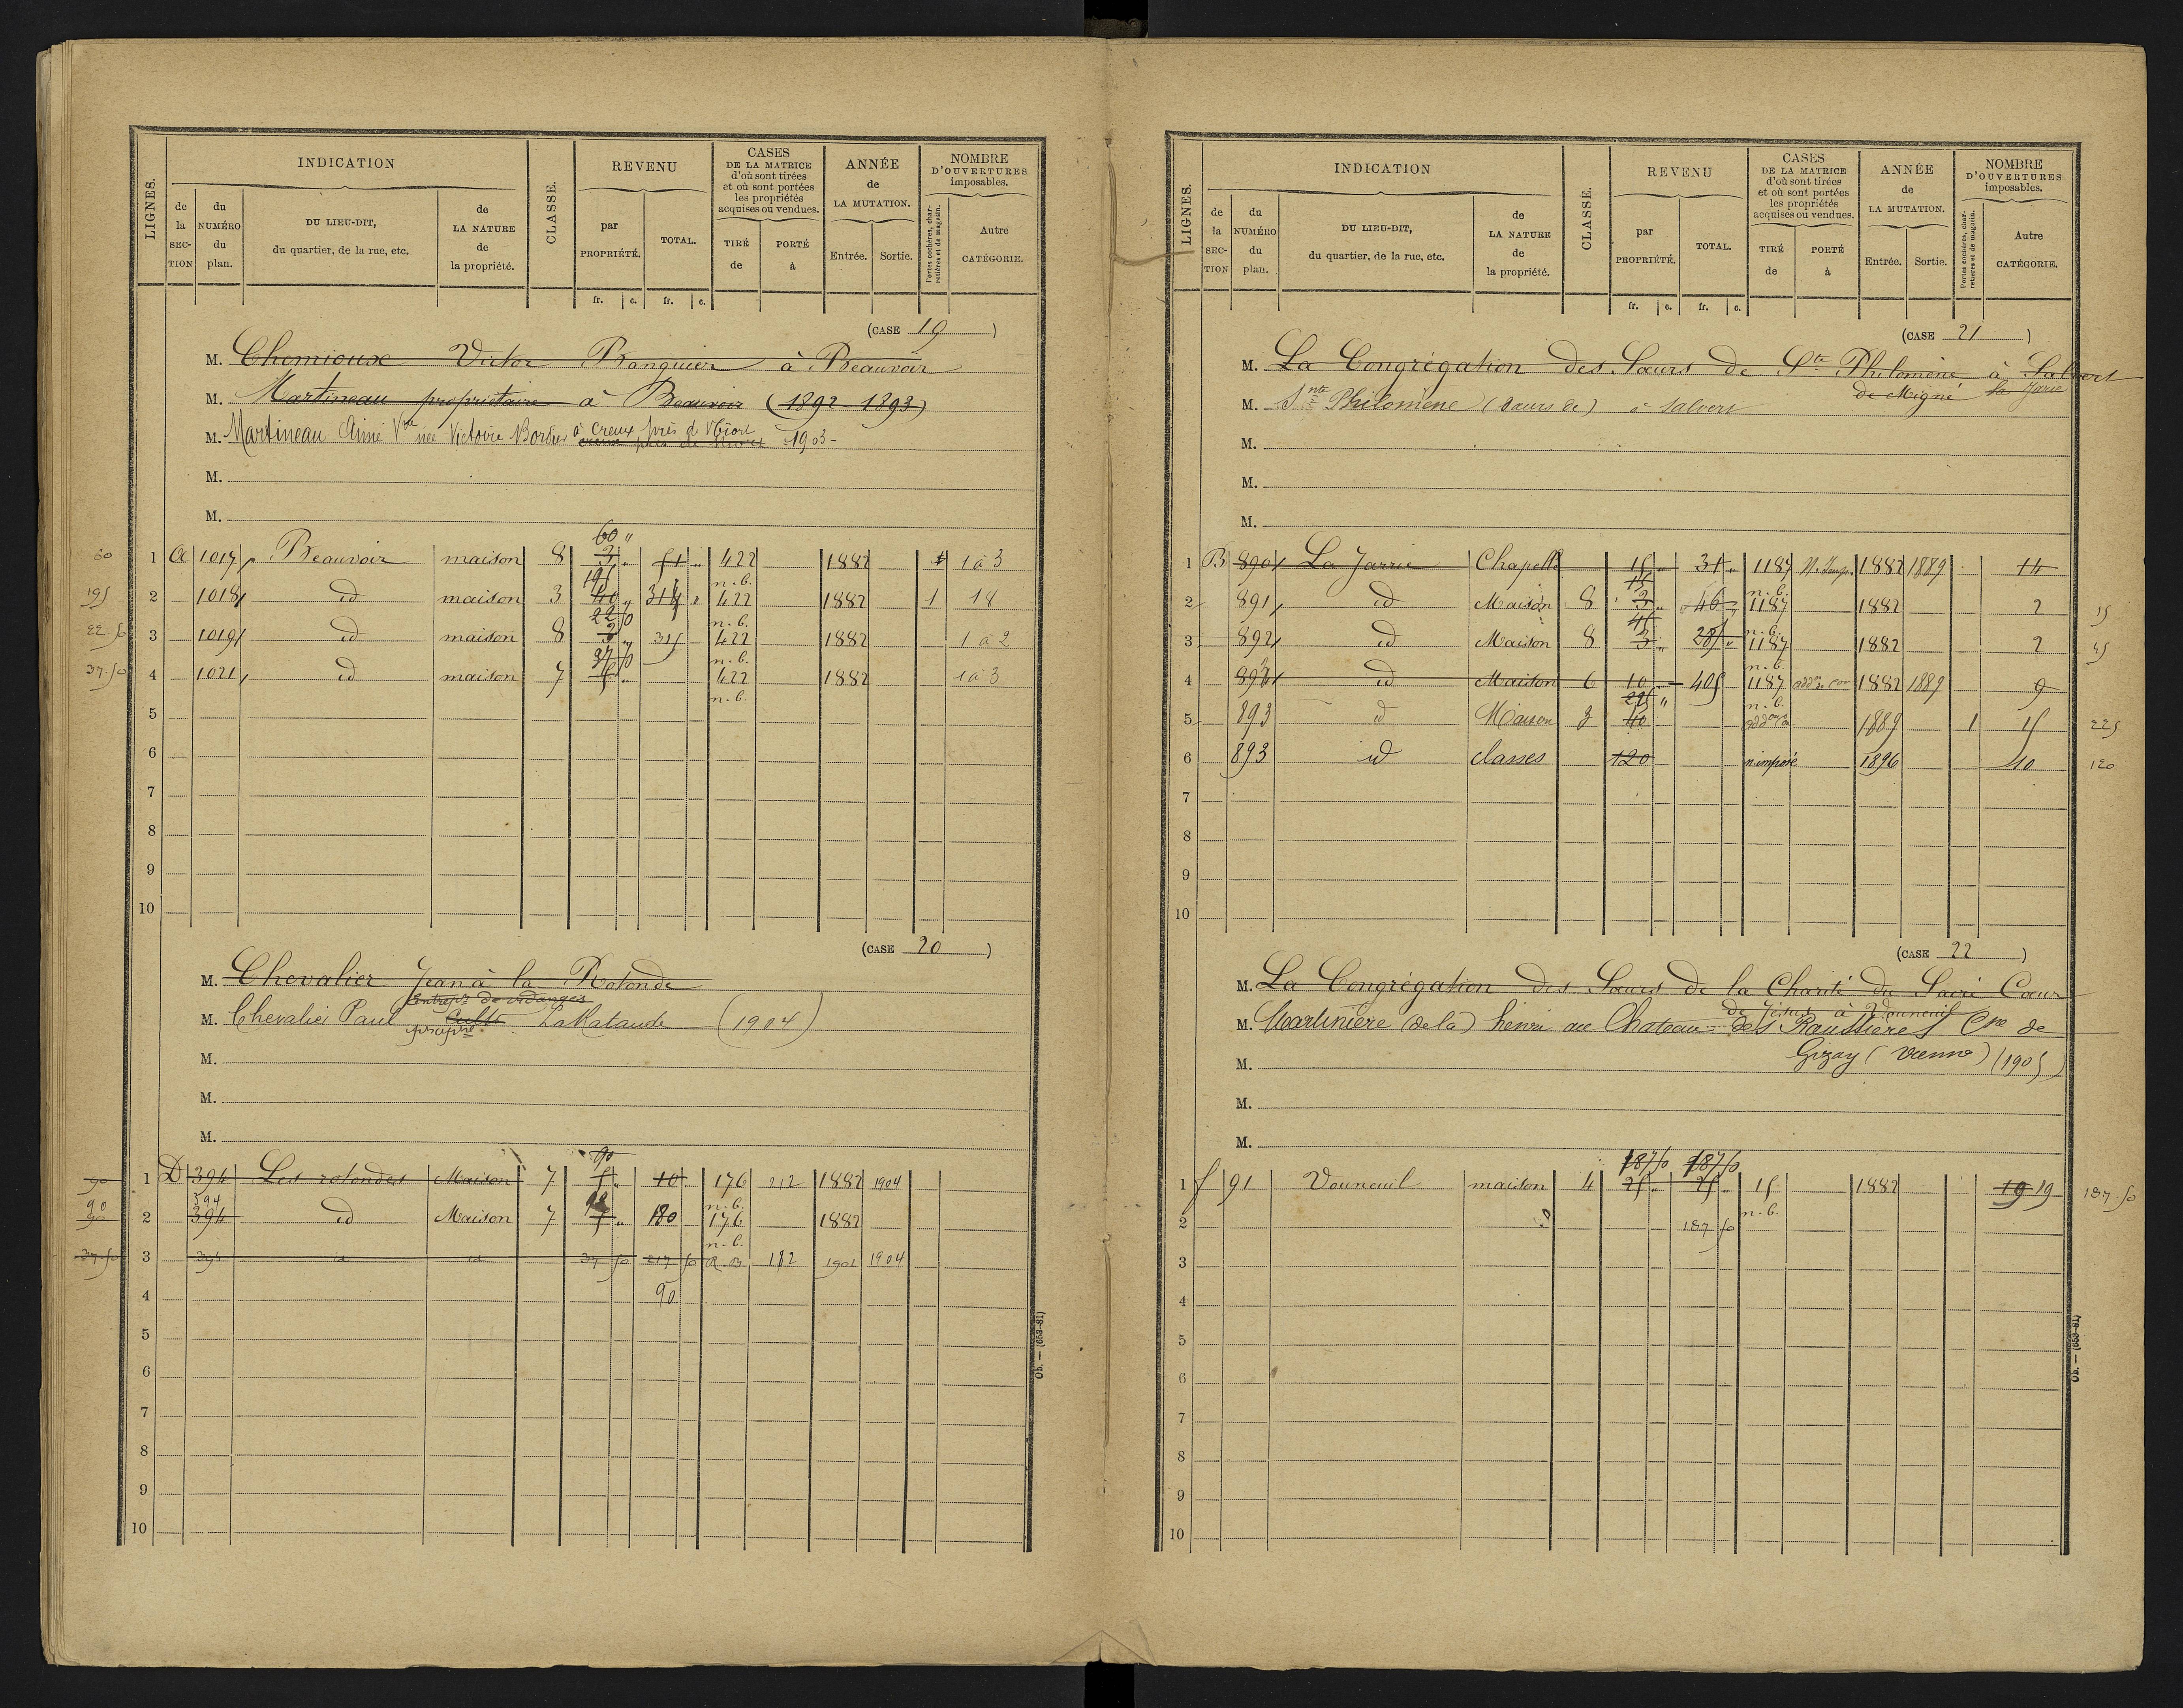 LIGNES. INDICATION CLASSE. REVENU CASES DE LA MATRICE d'où sont tirées et où sont portées les propriétés acquises ou vendues. ANNÉE de LA MUTATION. NOMBRE D'OUVERTURES imposables.
de la SECTION du NUMÉRO du plan. DU LIEU-DIT, du quartier, de la rue, etc. de LA NATURE de la propriété. par PROPRIÉTÉ. TOTAL. TIRÉ de PORTÉ à Entrée. Sortie. Portes cochères, charretières et de magasin. Autre CATÉGORIE.
fr. c. fr. c.
(CASE 19)
M. Chemioux Victor Banquier à Beauvoir
M. Martineau propriétaire à Beauvoir (1892-1893)
M. Martineau Aimé Vve née Victoire Bordier à Creux près de Niort 1903
M.
M.
60 "
60 1 A 1017 Beauvoir maison 8 3 " 51 " 422 1882 1 1 à 3
195 n.b.
195 2 1018 id maison 3 40 " 314 " 422 1882 1 18
22 50 n.b.
22 50 3 1019 id maison 8 3 " 315 422 1882 1 à 2
37 50 n.b.
37.50 4 1021 id maison 7 5 " 422 1882 1 à 3
n.b.
5
6
7
8
9
10
(CASE 20)
M. Chevalier Jean à la Rotonde
Entrepr de vidanges
M. Chevalier Paul Cultr La Mataude (1904)
propre
M.
M.
M.
90
90 1 D 394 Les rotondes Maison 7 5 " 10 176 212 1882 1904
90 594 n.b.
2 394 id Maison 7 5 " 180 176 1882
n.b.
37.50 3 394 id id 37 50 217 50 R.B 182 1902 1904
4 90
5
6
7
8
9
10
Ob. — (653-81)
LIGNES. INDICATION CLASSE. REVENU CASES DE LA MATRICE d'où sont tirées et où sont portées les propriétés acquises ou vendues. ANNÉE de LA MUTATION. NOMBRE D'OUVERTURES imposables.
de la SECTION du NUMÉRO du plan. DU LIEU-DIT, du quartier, de la rue, etc. de LA NATURE de la propriété. par PROPRIÉTÉ. TOTAL. TIRÉ de PORTÉ à Entrée. Sortie. Portes cochères, charretières et de magasin. Autre CATÉGORIE.
fr. c. fr. c.
(CASE 21)
M. La Congrégation des Sœurs de Ste Philomène à Salvert
de Migné la Jarie
M. Snte Philomène (Sœurs de) à Salvert
M.
M.
M.
1 B 890 La Jarrie Chapelle 15 " 31 " 1187 1882 1889 14
15 n.b.
2 891 id Maison 8 3 " 46 " 1187 1882 2 15
45 n.b.
3 892 id Maison 8 3 " 285 " 1187 1882 2 45
n.b.
4 893 id Maison 6 10 405 1187 1882 1889 9
225 " n.b.
5 893 id Maison 3 40 1889 1 15 225
6 893 id classes 120 n.imposé 1896 40 120
7
8
9
10
(CASE 22)
M. La Congrégation des Sœurs de la Charité du Sacré Cœur
de Jésus à Vouneuil
M. Martinière (de la) henri au Chateau des Raussières Cne de
M. Gizay (Vienne) (1905)
M.
M.
187 50 187 50
1 f 91 Vouneuil maison 4 25 " 25 " 15 1882 19 19 187.50
n.b.
2 187 50
3
4
5
6
7
8
9
10
Ob. — (653-81)